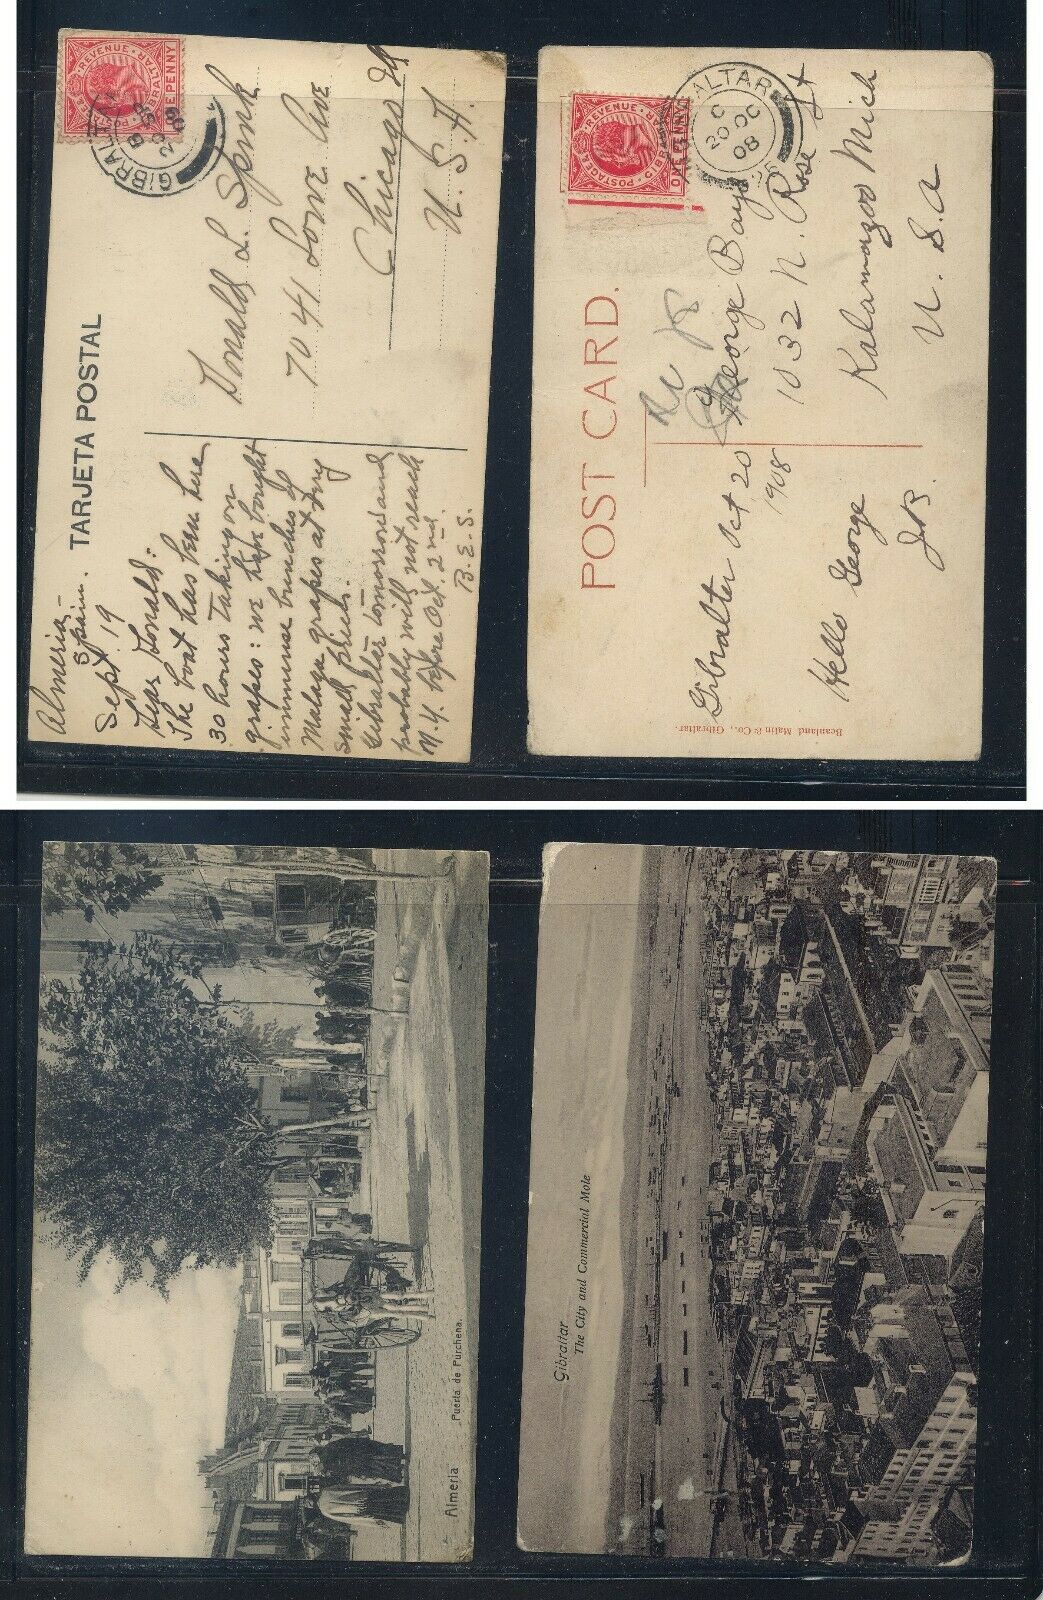 TARJETA POSTAL
POSTAGE & REVENUE
GIBRALTAR
ONE PENNY
GIBRALTAR
Donald L. Spink
7041 Lowe Ave
Chicago Ill
U. S. A.
Almeria -
Spain.
Sept. 19
Dear Donald:
The boat has been here
30 hours taking on
grapes: we have bought
immense bunches of
Malaga grapes at tiny
small prices.
Gibralter tomorrow and
probably will not reach
N.Y. before Oct. 2nd.
B. E. S.
POST CARD.
POSTAGE & REVENUE
GIBRALTAR
ONE PENNY
GIBRALTAR
C
20 OC
08
George Bays
1032 N. Rose St
Kalamazoo Mich
U. S. A
Gibralter Oct 20
1908
Hello George
JB.
Beanland Malin & Co., Gibraltar.
Almería Puerta de Purchena.
Gibraltar
The City and Commercial Mole